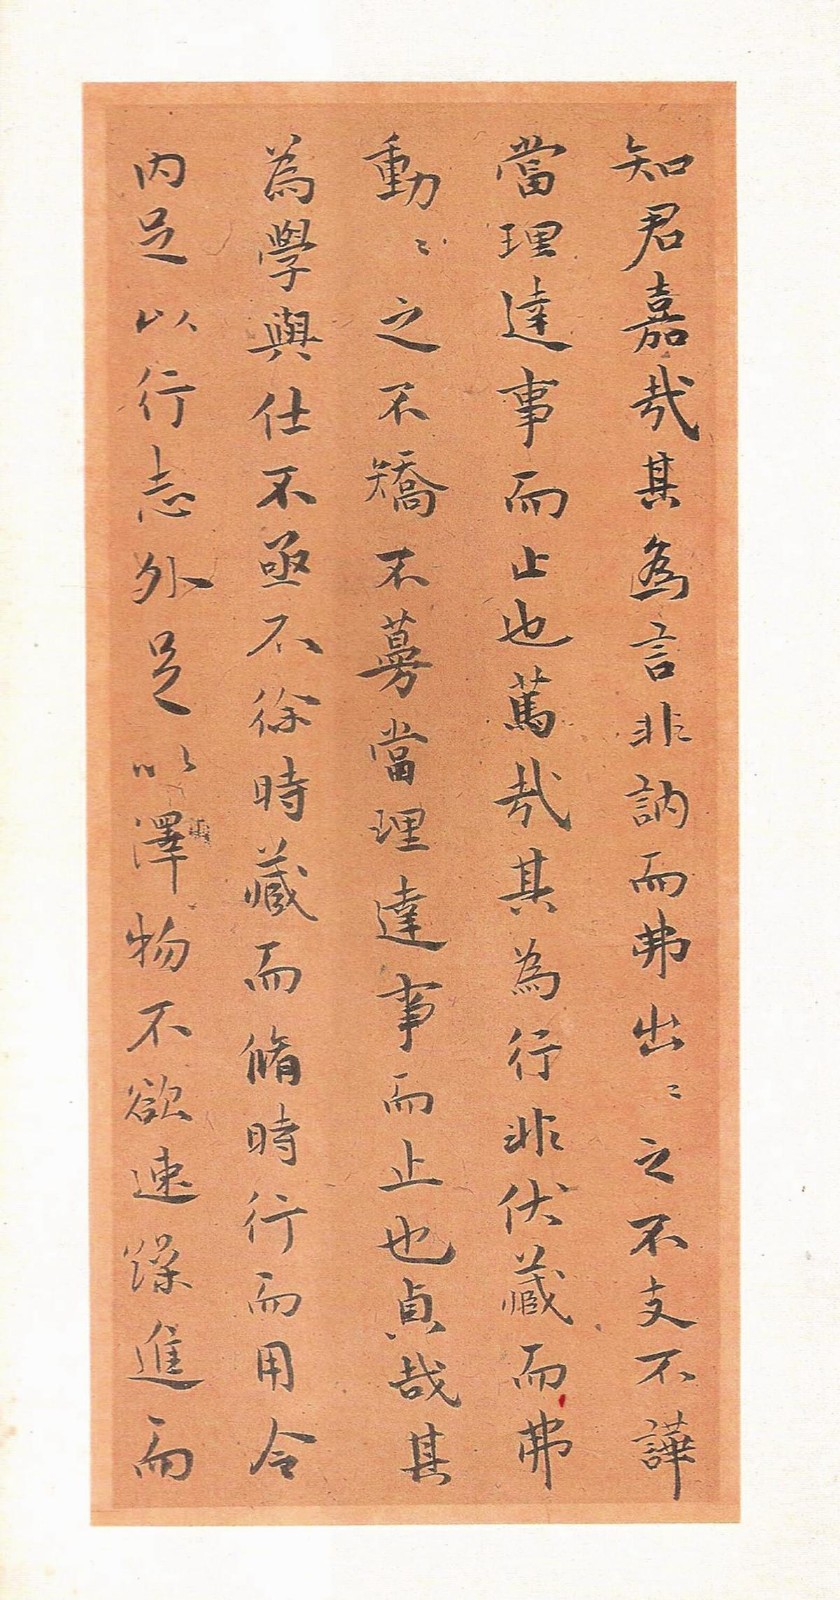 知君嘉哉其為言非訥而弗出〻之不支不譁
當理達事而止也篤哉其為行非伏藏而弗
動〻之不矯不募當理達事而止也貞哉其
為學與仕不亟不徐時藏而脩時行而用令
內足以行志外足以澤物不欲速躁進而